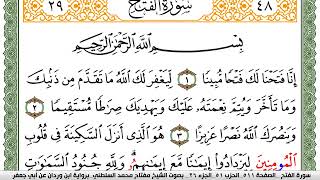 ٢٩ سُورَةُ الفَتْحِ ٤٨
بِسْمِ اللَّهِ الرَّحْمَٰنِ الرَّحِيمِ
إِنَّا فَتَحْنَا لَكَ فَتْحًا مُبِينًا ١ لِيَغْفِرَ لَكَ اللَّهُ مَا تَقَدَّمَ مِن ذَنبِكَ
وَمَا تَأَخَّرَ وَيُتِمَّ نِعْمَتَهُ عَلَيْكَ وَيَهْدِيَكَ صِرَاطًا مُّسْتَقِيمًا ٢
وَيَنصُرَكَ اللَّهُ نَصْرًا عَزِيزًا ٣ هُوَ الَّذِي أَنزَلَ السَّكِينَةَ فِي قُلُوبِ
الْمُومِنِينَ لِيَزْدَادُوا إِيمَٰنًا مَّعَ إِيمَٰنِهِمُ وَلِلَّهِ جُنُودُ السَّمَٰوَٰتِ
سورة الفتح الصفحة ٥١١ الحزب ٥١ الجزء ٢٦ بصوت الشيخ مفتاح محمد السلطني برواية ابن وردان عن أبي جعفر